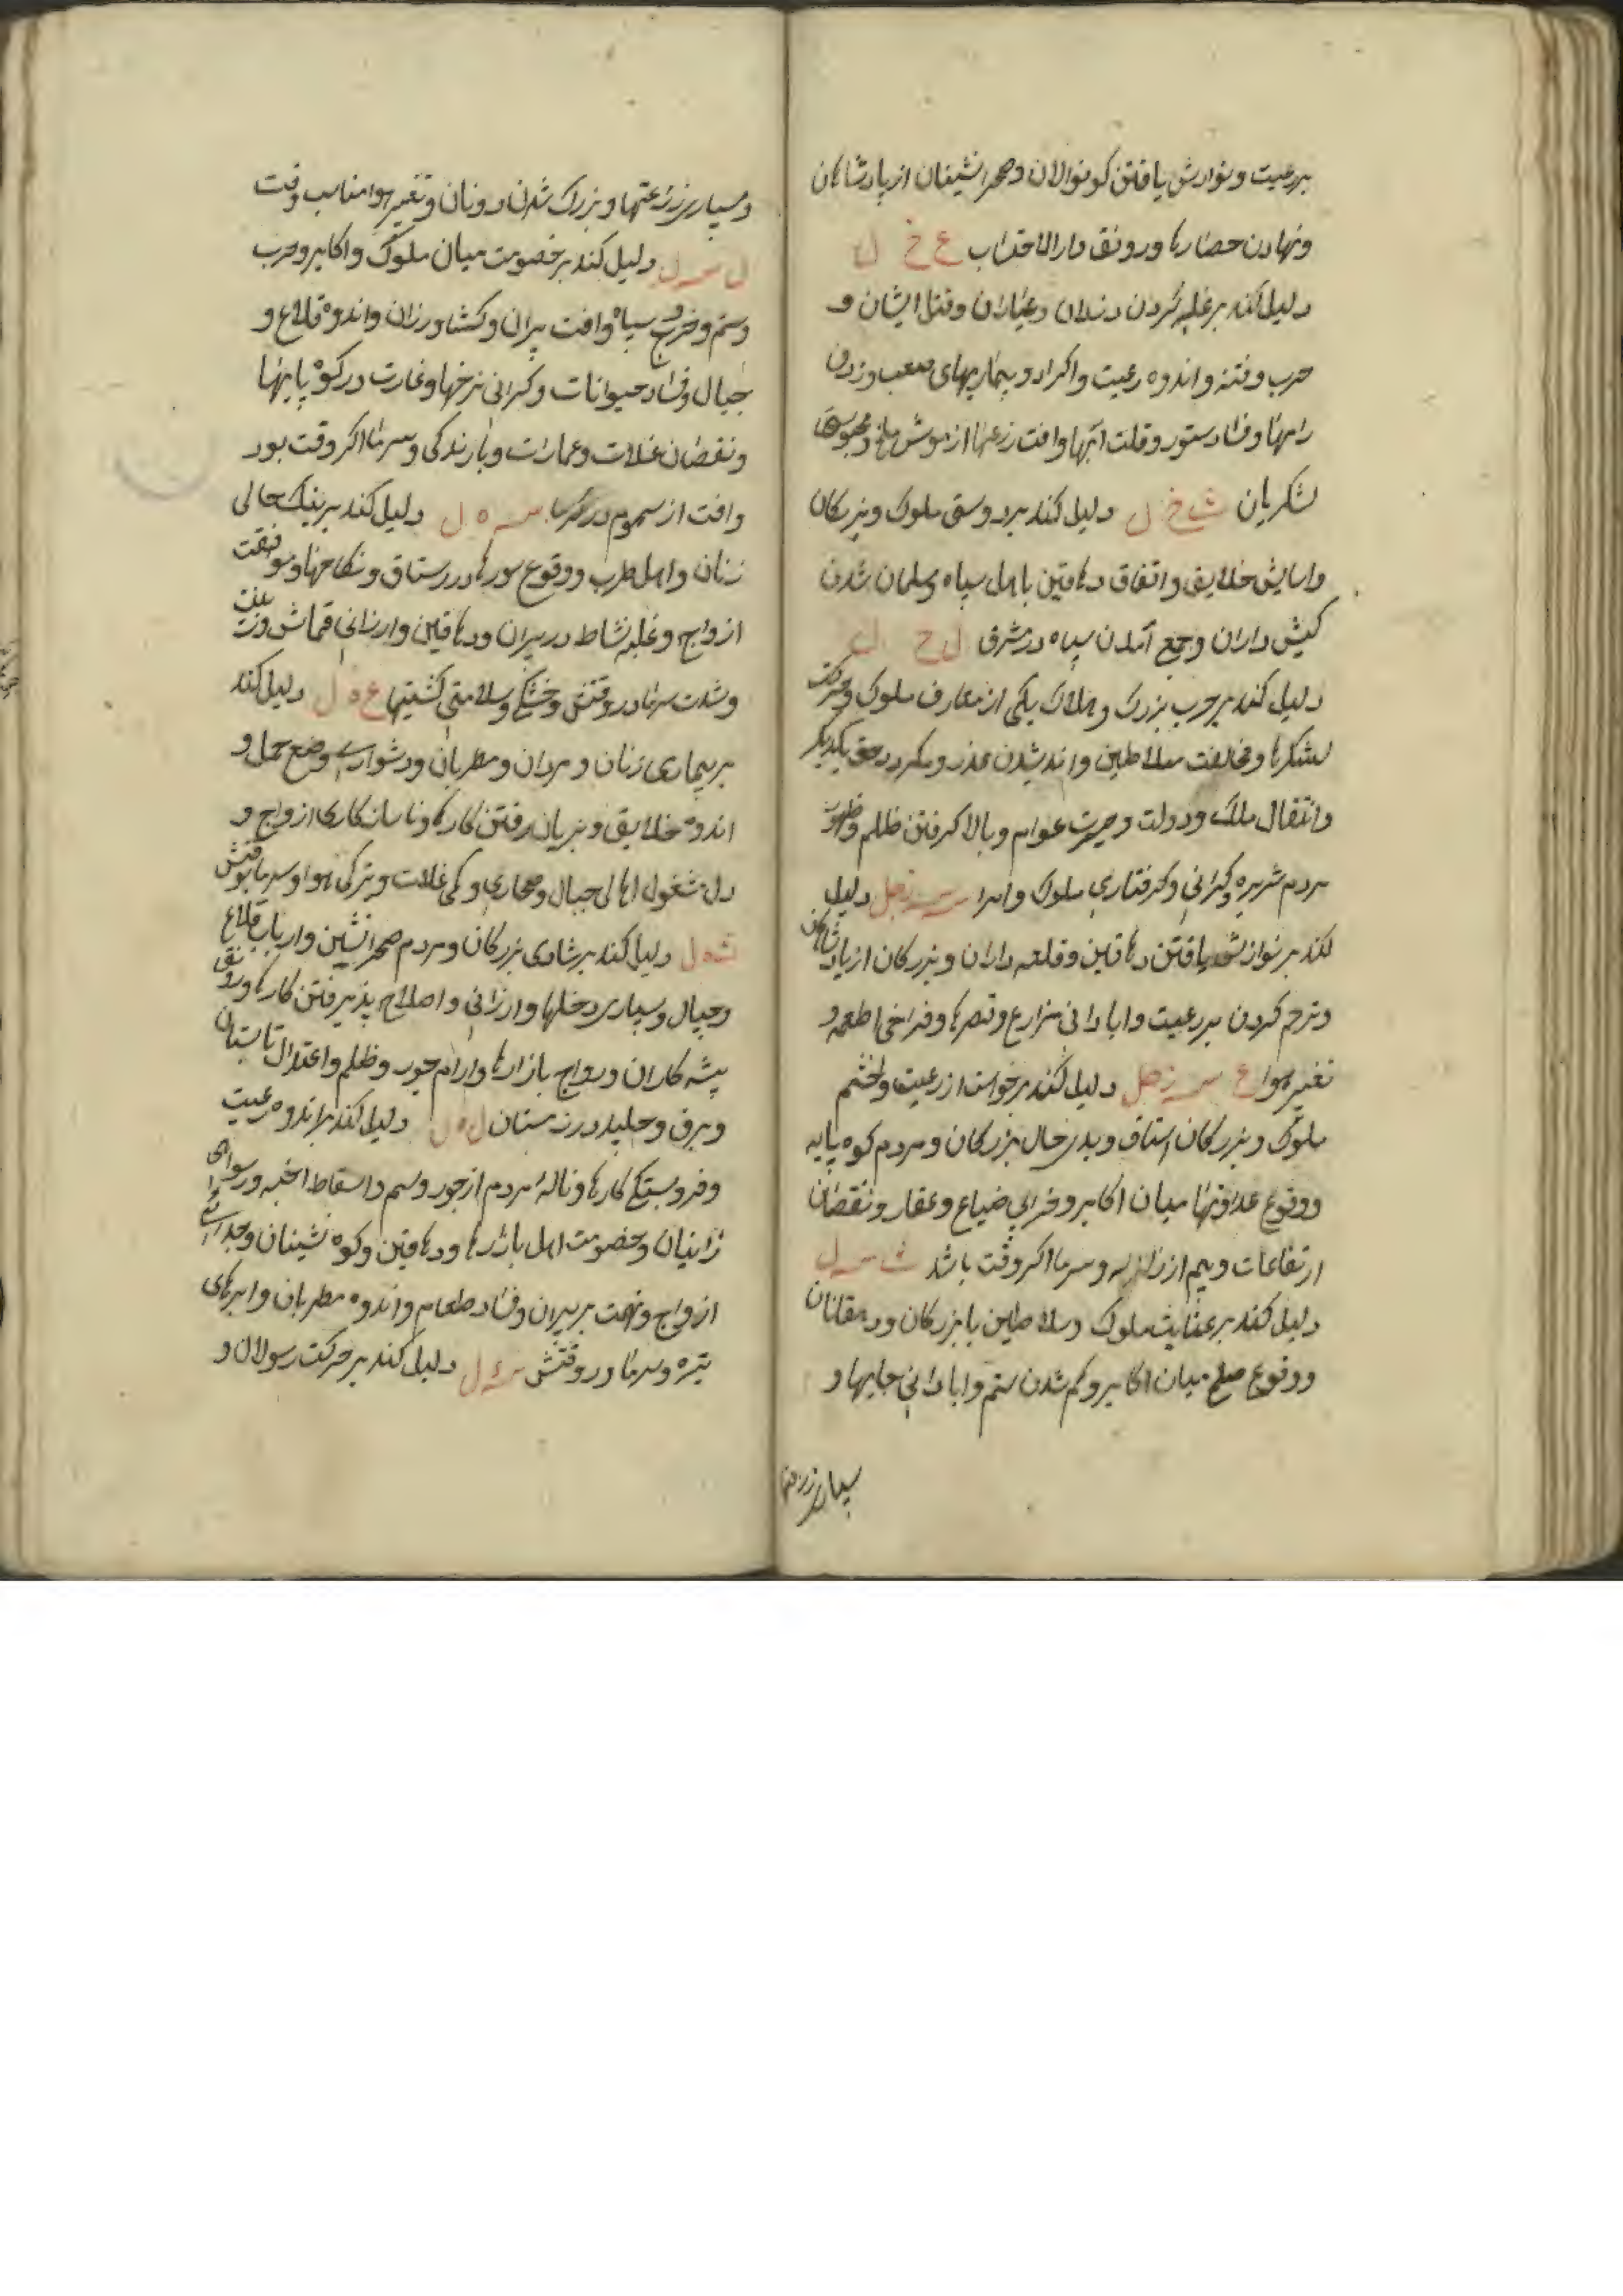 بررعیت و نوازش یافتن کوتوالان و صحرانشینان از پادشاهان
ونهادن حصارها و رونق دارالاحتراب ع خ ل
دلیل کند بر غلبه کردن دزدان و عیاران و قتل ایشان و
حرب و فتنه و اندوه رعیت و اکراد و بیماریهای صعب و زدن
راهها و فساد ستور و قلت آبها و افت زرعها از موش و ملخ و
لشکریان ث خ ل دلیل کند بر دوستی ملوک و بزرکان
واسایش خلایق و اتفاق دهاقین با اهل سپاه و مسلمان شدن
کیش داران و جمع آمدن سپاه در مشرق ل خ ل
دلیل کند بر حرب بزرک و هلاک یکی از معارف ملوک و حرکت
لشکرها و مخالفت سلاطین و اندیشیدن غدر و مکر در حق یکدیگر
وانتقال ملک و دولت و حیرت عوام و بالا کرفتن ظلم و ظهور
مردم شریر و کرانی و کرفتاری ملوک و امرا س زحل دلیل
کند بر نوازش یافتن دهاقین و قلعه داران و بزرکان از پادشاهان
و ترحم کردن بر رعیت و ابادانی مزارع و قصرها و فراخی اطعمه و
تغییر هوا ع س زحل دلیل کند بر خواست از رعیت و خشم
ملوک و بزرکان استاق و بدی حال بزرکان و مردم کوه پایه
ووقوع عداوتها میان اکابر و خرابی ضیاع و عقار و نقصان
ارتفاعات و بیم از زلزله و سرما اکر وقت باشد ث س ل
دلیل کند بر عنایت ملوک و سلاطین با بزرکان و دهقانان
ووقوع صلح میان اکابر و کم شدن ستم و ابادانی جایها و
بسیاری زرعتها
و بسیاری زرعتها و بزرک شدن دونان و تغییر هوا مناسب وقت
ل س ل دلیل کند بر خصومت میان ملوک و اکابر و حرب
وستم و خروج سپاه و افت پیران و کشاورزان و اندوه قلاع و
جبال و فساد حیوانات و کرانی نرخها و غارت در کوه پایها
ونقصان غلات و عمارات و بارندکی و سرما اکر وقت بود
وافت از سموم در کرما س ه ل دلیل کند بر نیک حالی
زنان و اهل طرب و وقوع سورها در رستاق و نکاحها و موافقت
ازواج و غلبه نشاط در پیران و دهاقین و ارزانی قماش و زینت
وشدت سرما در وقتش و خشکی و سلامتی کشتیها ع ه ل دلیل کند
بر بیماری زنان و مردان و مطربان و دشواری وضع حمل و
اندوه خلایق و بزیان رفتن کارها و ناسازکاری ازواج و
دل مشغول اهالی جبال و صحاری و کمی غلات و تیرکی هوا و سرما بوقتش
ث ه ل دلیل کند بر شادی بزرکان و مردم صحرانشین و ارباب قلاع
وجبال و بسیاری دخلها و ارزانی و اصلاح پذیرفتن کارها و رونق
پیشه کاران و رواج بازارها و ارام جور و ظلم و اعتدال تابستان
وبرق و جلید در زمستان ل ه ل دلیل کند بر اندوه رعیت
وفروبستکی کارها و ناله مردم از جور و ستم و اسقاط اجنه و رسوایی
زانیان و خصومت اهل بازارها و دهاقین و کوه نشینان و جدایی
ازواج و تهمت بر پیران و فساد طعام و اندوه مطربان و ابرهای
تیره و سرما در وقتش س ل دلیل کند بر حرکت رسولان و